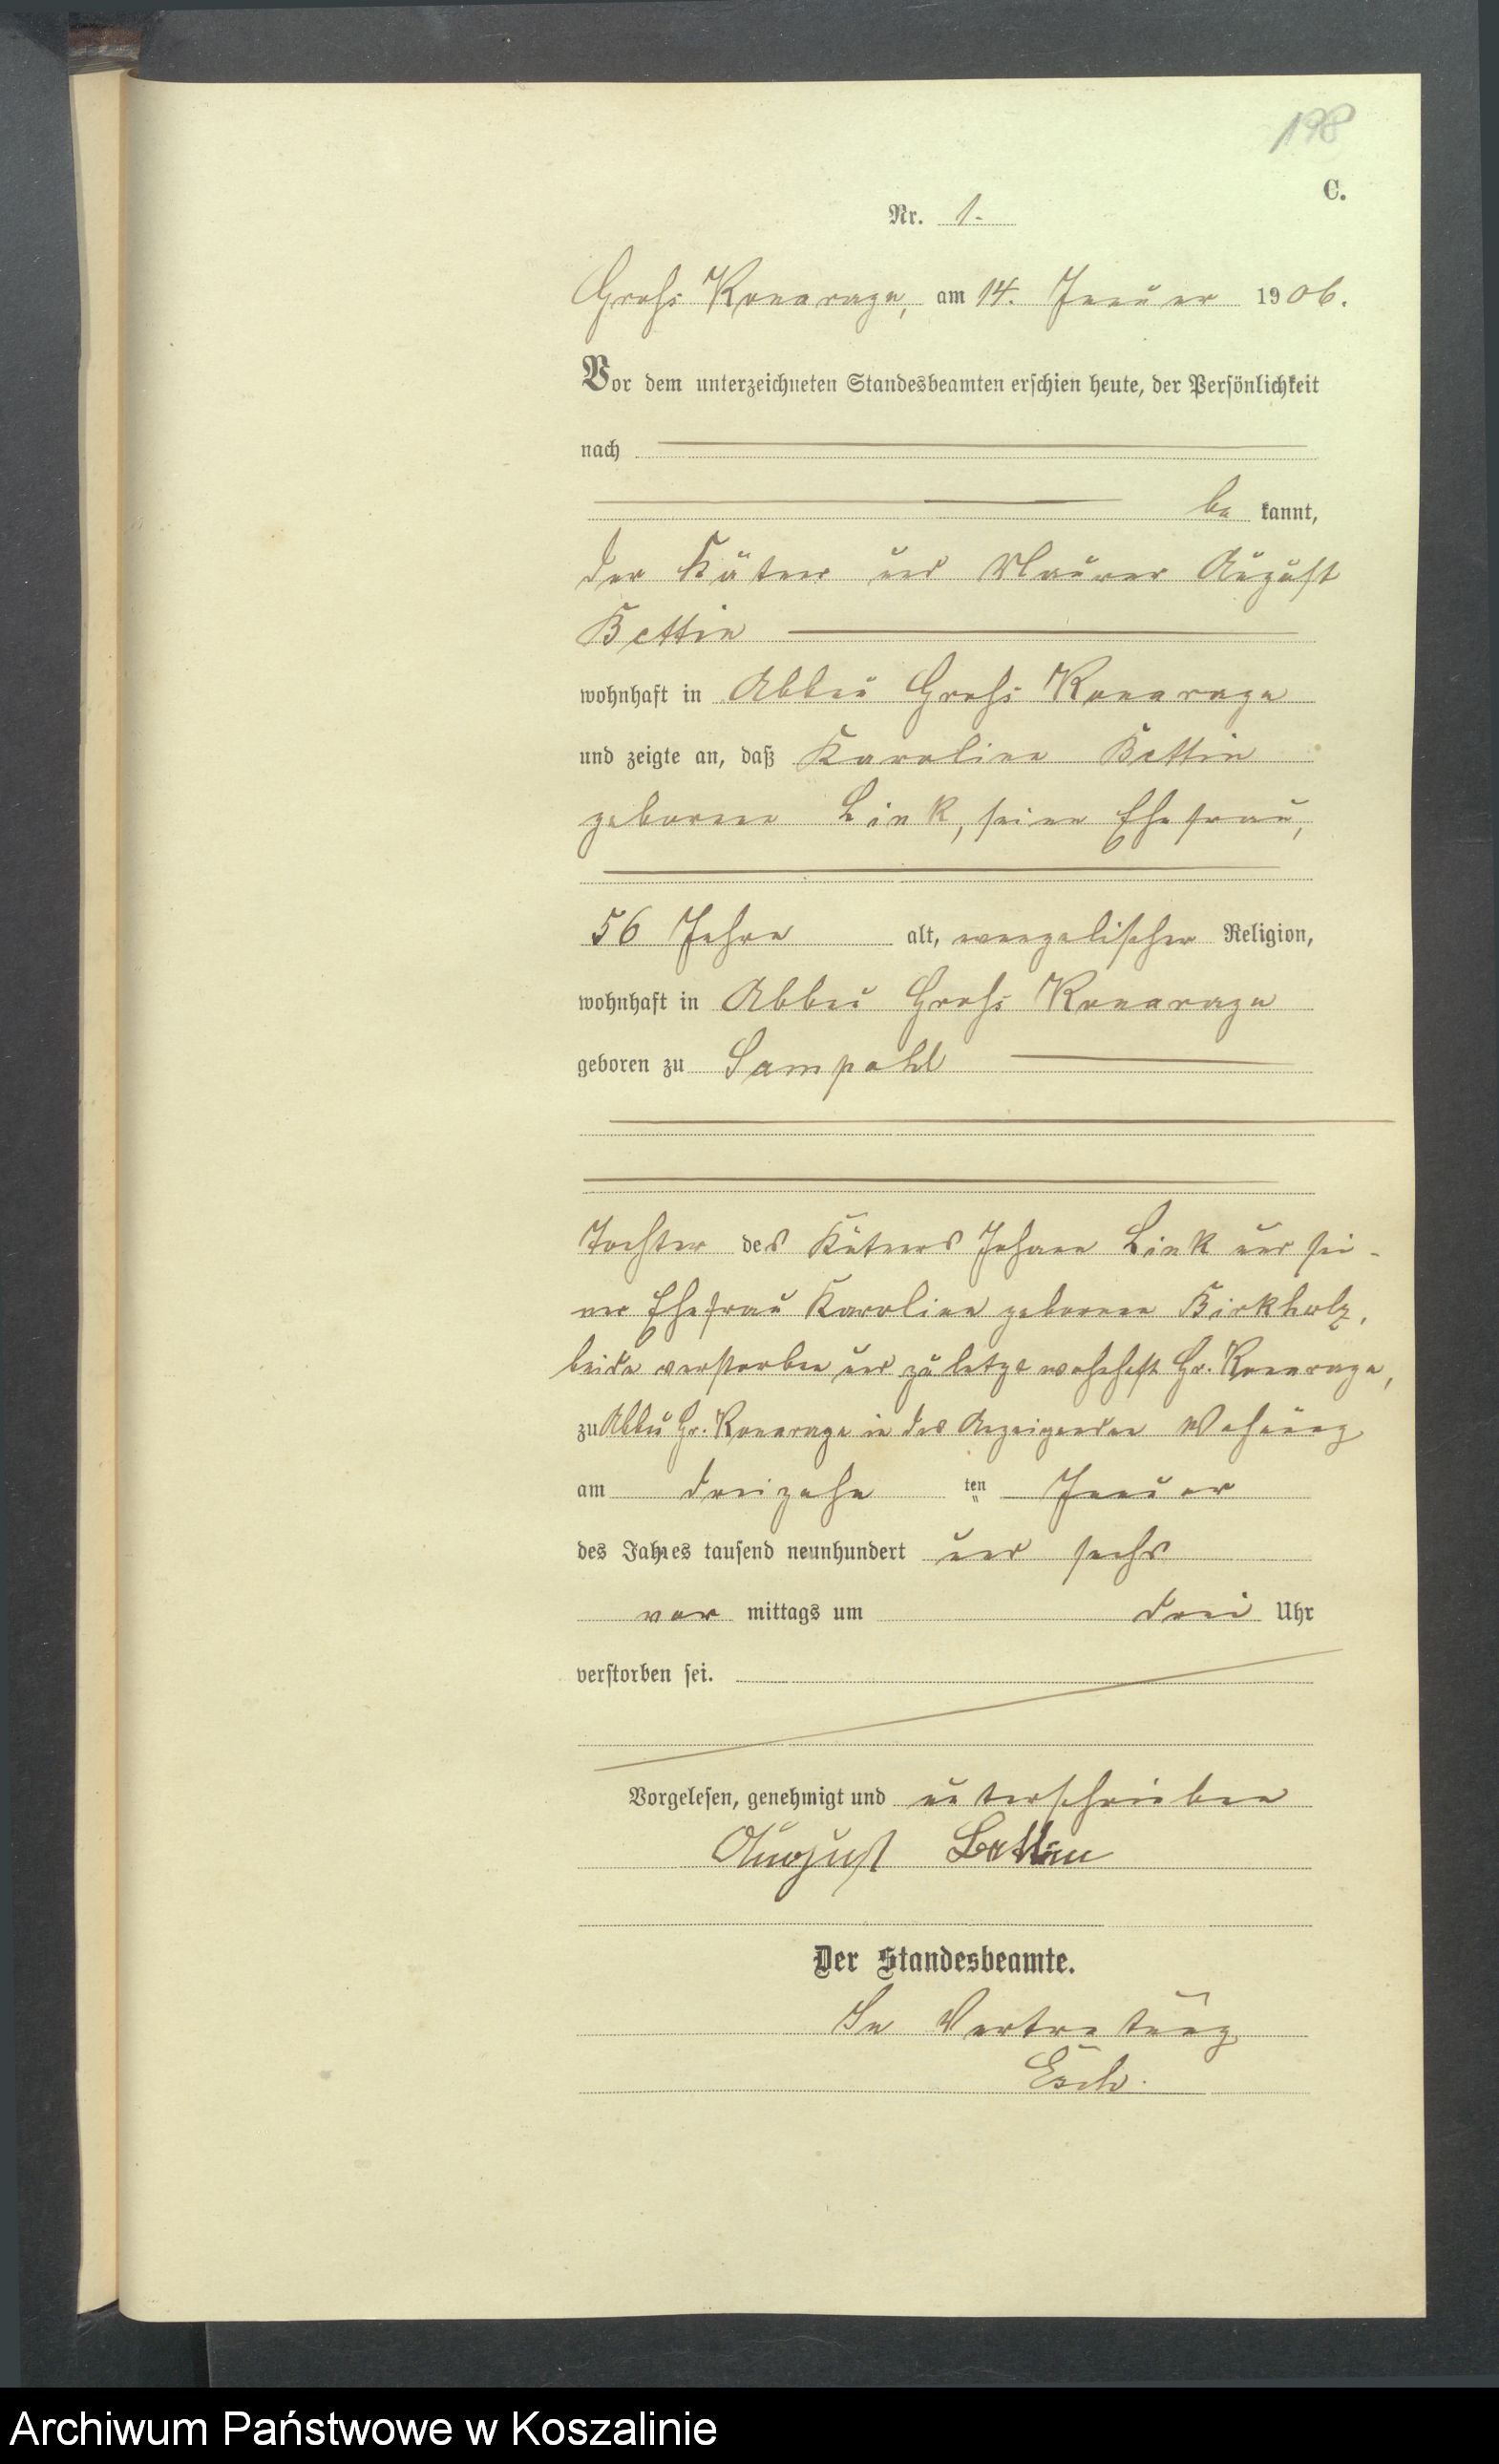 198
C.
Nr. 1.
Groß Konarage, am 14. Januar 1906.
Vor dem unterzeichneten Standesbeamten erschien heute, der Persönlichkeit
nach
be kannt,
der Kätner und Maurer August
Bettin
wohnhaft in Abbau Groß Konarage
und zeigte an, daß Karoline Bettin
geborene Link, seine Ehefrau,
56 Jahre alt, evangelischer Religion,
wohnhaft in Abbau Groß Konarage
geboren zu Sampohl
Tochter des Kätners Johann Link und sei-
ner Ehefrau Karoline geborene Birkholz,
beide verstorben und zuletzt wohnhaft Gr. Konarage,
zu Abbau Gr. Konarage in des Anzeigenden Wohnung
am dreizehn ten Januar
des Jahres tausend neunhundert und sechs
vor mittags um drei Uhr
verstorben sei.
Vorgelesen, genehmigt und unterschrieben
August Bettin
Der Standesbeamte.
In Vertretung
Esch.
Archiwum Państwowe w Koszalinie